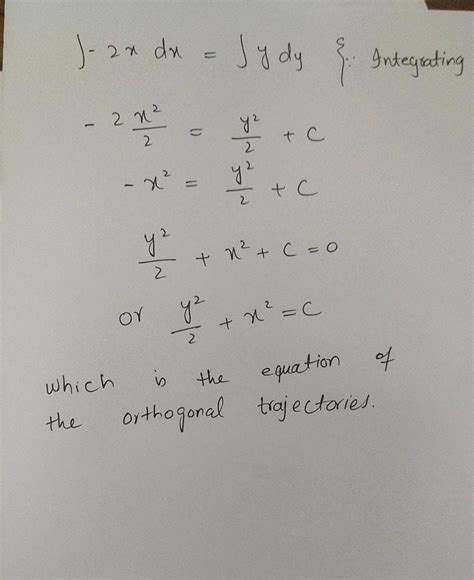 ∫- 2x dx = ∫ y dy {∵ Integrating
- 2 x²/2 = y²/2 + C
- x² = y²/2 + C
y²/2 + x² + C = 0
or y²/2 + x² = C
which is the equation of
the orthogonal trajectories.